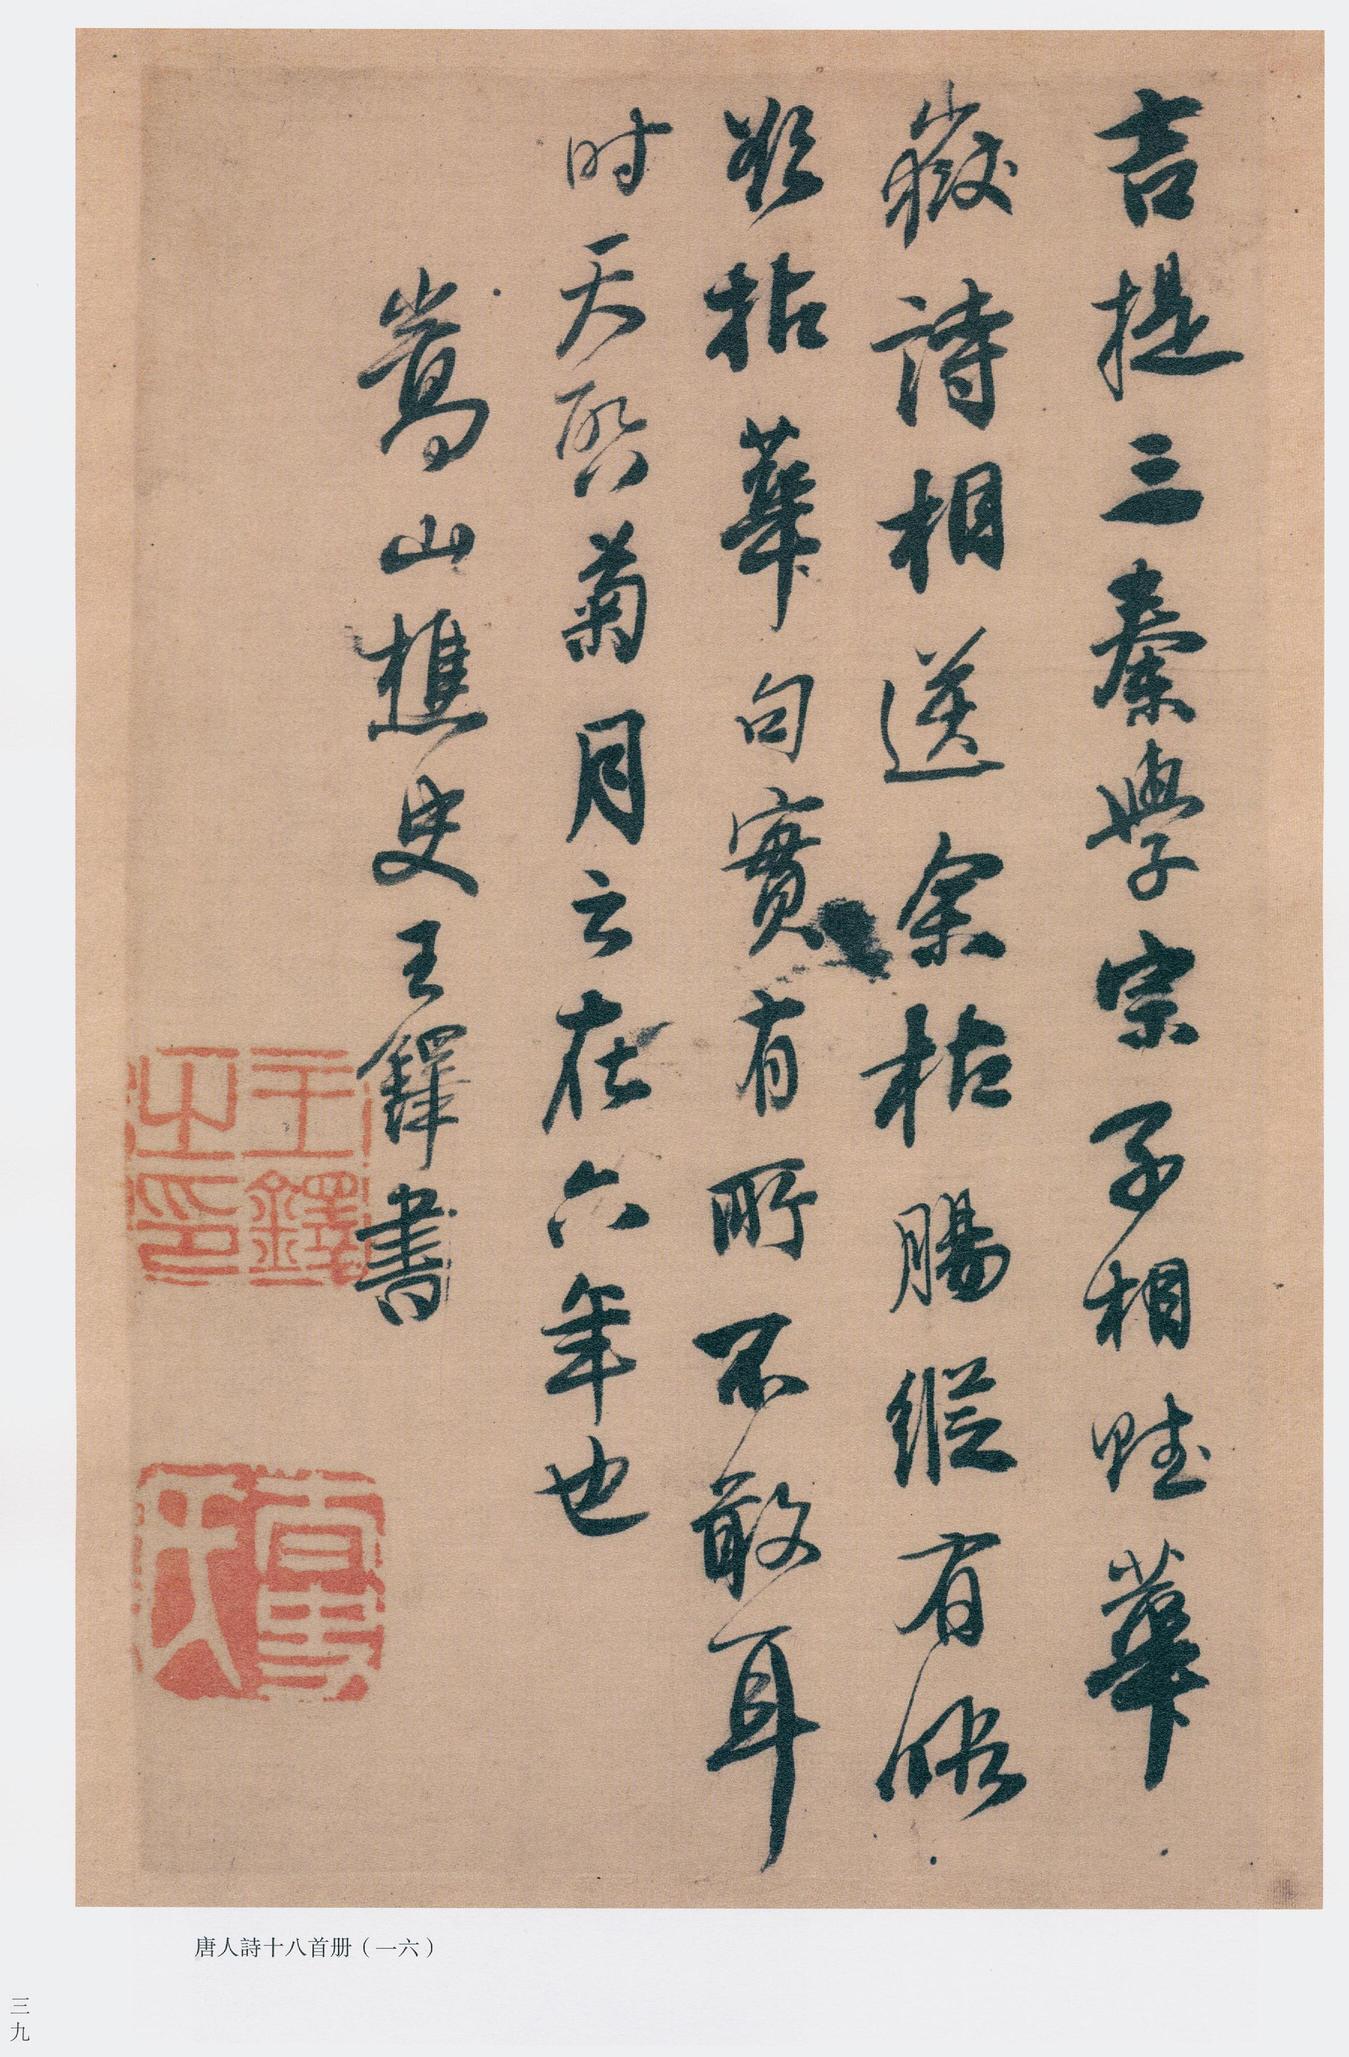 吉提三秦學宗子相賦華
嶽詩相送余枯腸縱有俗
拈華句實有所不敢耳
时天啓菊月云在六年也
嵩山樵史王鐸書
王鐸之印
唐人詩十八首册（一六）
三九